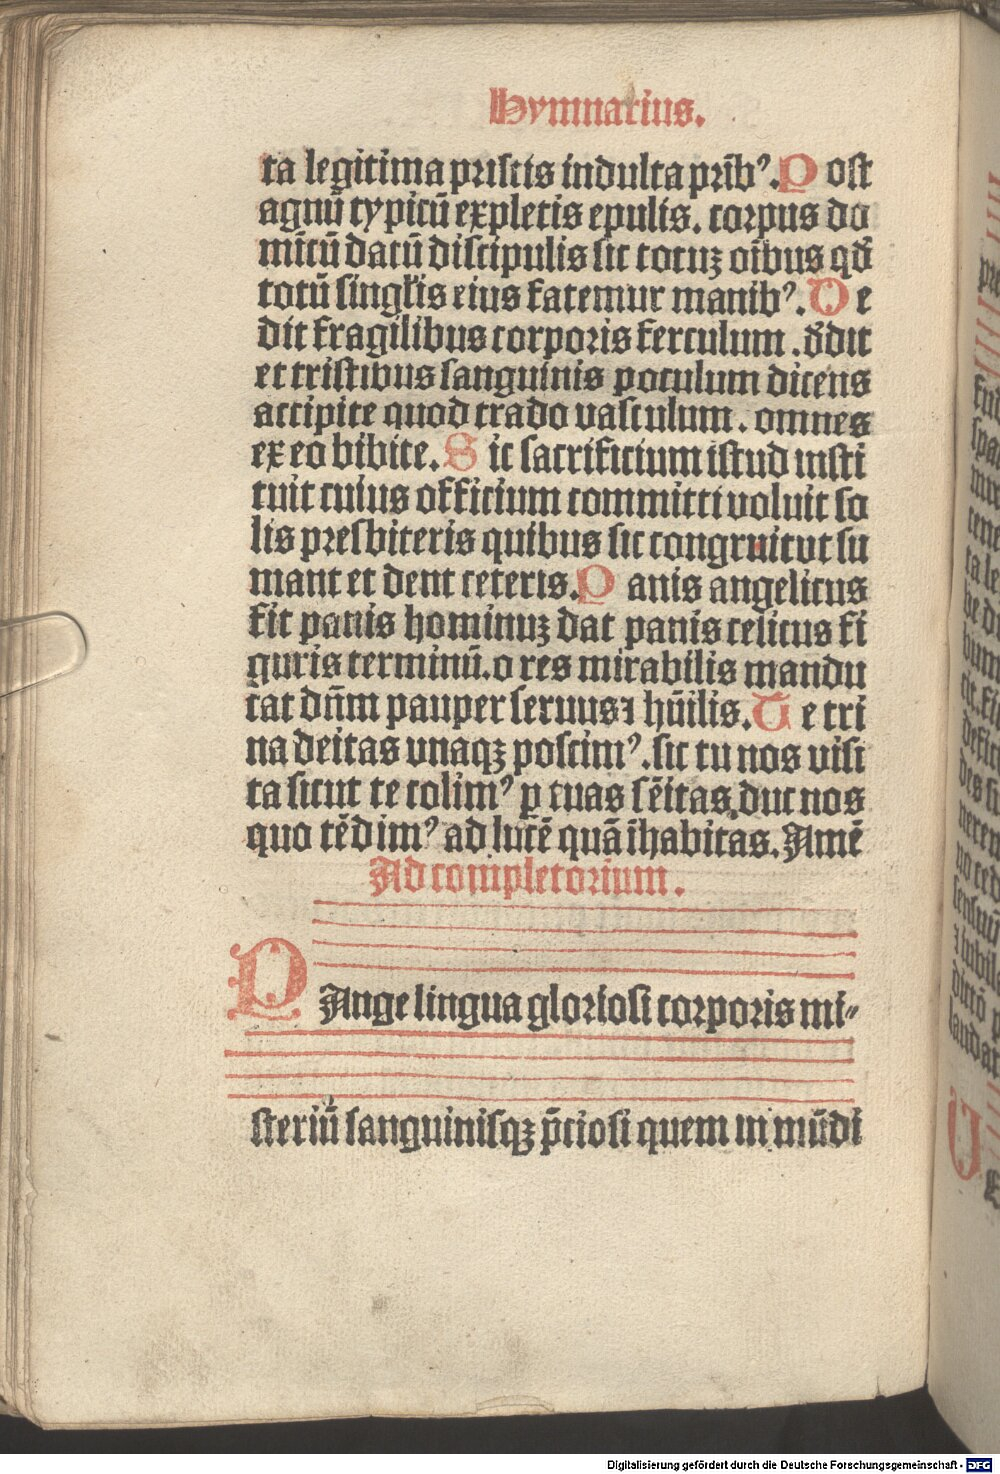 Hymnarius.
ta legitima priscis indulta prib᷒. Post
agnū typicū expletis epulis. corpus do
mīcū datū discipulis sic totuʒ oībus qđ
totū singl̄is eius fatemur manib᷒. De
dit fragilibus corporis ferculum. ꝺdit
et tristibus sanguinis poculum dicens
accipite quod trado vasculum. omnes
ex eo bibite. Sic sacrificium istud insti
tuit cuius officium committi voluit so
lis presbiteris quibus sic congruit vt su
mant et dent ceteris. Panis angelicus
fit panis hominuʒ dat panis celicus fi
guris terminū. o res mirabilis mandu
cat dn̄m pauper seruus ⁊ hūilis. Te tri
na deitas vnaqʒ poscim᷒. sic tu nos visi
ta sicut te colim᷒ ꝑ tuas sēitas, duc nos
quo tēdim᷒ ad lucē quā īhabitas. Amē
Ad completorium.
PAnge lingua gloriosi corporis mi⸗
steriū sanguinisqʒ p̄ciosi quem in mūdi
Digitalisierung gefördert durch die Deutsche Forschungsgemeinschaft - DFG